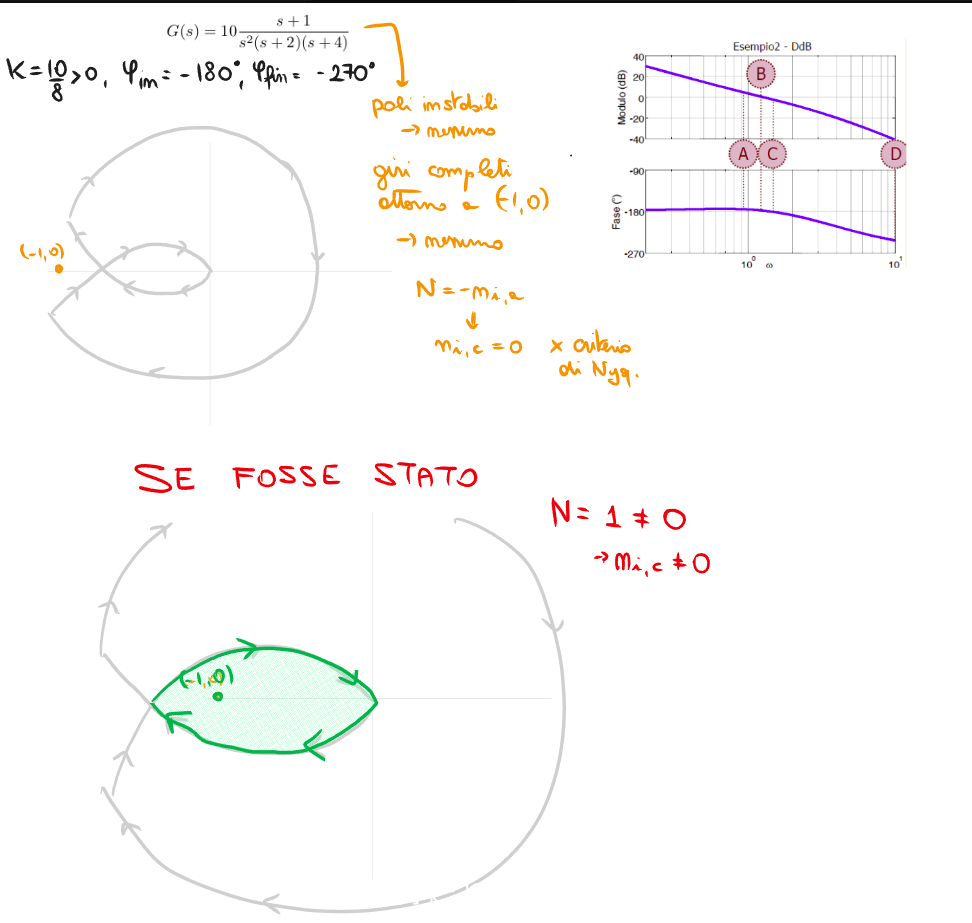 G(s) = 10 \frac{s+1}{s^2(s+2)(s+4)}
K = \frac{10}{8} > 0, φin = -180°, φfin = -270°
poli instabili
→ nessuno
giri completi
attorno a (-1,0)
→ nessuno
N = -ni,a
↓
ni,c = 0 x criterio
di Nyq.
(-1,0)
Esempio2 - DdB
Modulo (dB)
40
20
0
-20
-40
B
A
C
D
Fase (°)
-90
-180
-270
10^0
ω
10^1
SE FOSSE STATO
N = 1 ≠ 0
→ ni,c ≠ 0
(-1,0)